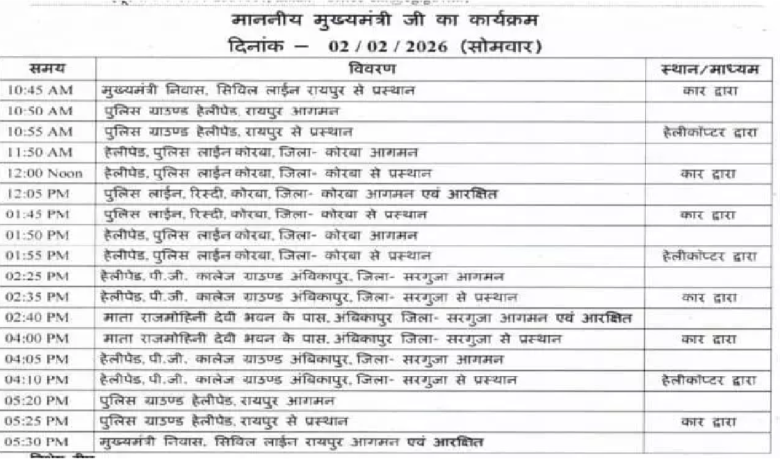 माननीय मुख्यमंत्री जी का कार्यक्रम
दिनांक – 02/02/2026 (सोमवार)
समय विवरण स्थान/माध्यम
10:45 AM मुख्यमंत्री निवास, सिविल लाईन रायपुर से प्रस्थान कार द्वारा
10:50 AM पुलिस ग्राउण्ड हेलीपेड, रायपुर आगमन
10:55 AM पुलिस ग्राउण्ड हेलीपेड, रायपुर से प्रस्थान हेलीकॉप्टर द्वारा
11:50 AM हेलीपेड, पुलिस लाईन कोरबा, जिला- कोरबा आगमन
12:00 Noon हेलीपेड, पुलिस लाईन कोरबा, जिला- कोरबा से प्रस्थान कार द्वारा
12:05 PM पुलिस लाईन, रिस्दी, कोरबा, जिला- कोरबा आगमन एवं आरक्षित
01:45 PM पुलिस लाईन, रिस्दी, कोरबा, जिला- कोरबा से प्रस्थान कार द्वारा
01:50 PM हेलीपेड, पुलिस लाईन कोरबा, जिला- कोरबा आगमन
01:55 PM हेलीपेड, पुलिस लाईन कोरबा, जिला- कोरबा से प्रस्थान हेलीकॉप्टर द्वारा
02:25 PM हेलीपेड, पी.जी. कालेज ग्राउण्ड अंबिकापुर, जिला- सरगुजा आगमन
02:35 PM हेलीपेड, पी.जी. कालेज ग्राउण्ड अंबिकापुर, जिला- सरगुजा से प्रस्थान कार द्वारा
02:40 PM माता राजमोहिनी देवी भवन के पास, अंबिकापुर जिला- सरगुजा आगमन एवं आरक्षित
04:00 PM माता राजमोहिनी देवी भवन के पास, अंबिकापुर जिला- सरगुजा से प्रस्थान कार द्वारा
04:05 PM हेलीपेड, पी.जी. कालेज ग्राउण्ड अंबिकापुर, जिला- सरगुजा आगमन
04:10 PM हेलीपेड, पी.जी. कालेज ग्राउण्ड अंबिकापुर, जिला- सरगुजा से प्रस्थान हेलीकॉप्टर द्वारा
05:20 PM पुलिस ग्राउण्ड हेलीपेड, रायपुर आगमन
05:25 PM पुलिस ग्राउण्ड हेलीपेड, रायपुर से प्रस्थान कार द्वारा
05:30 PM मुख्यमंत्री निवास, सिविल लाईन रायपुर आगमन एवं आरक्षित